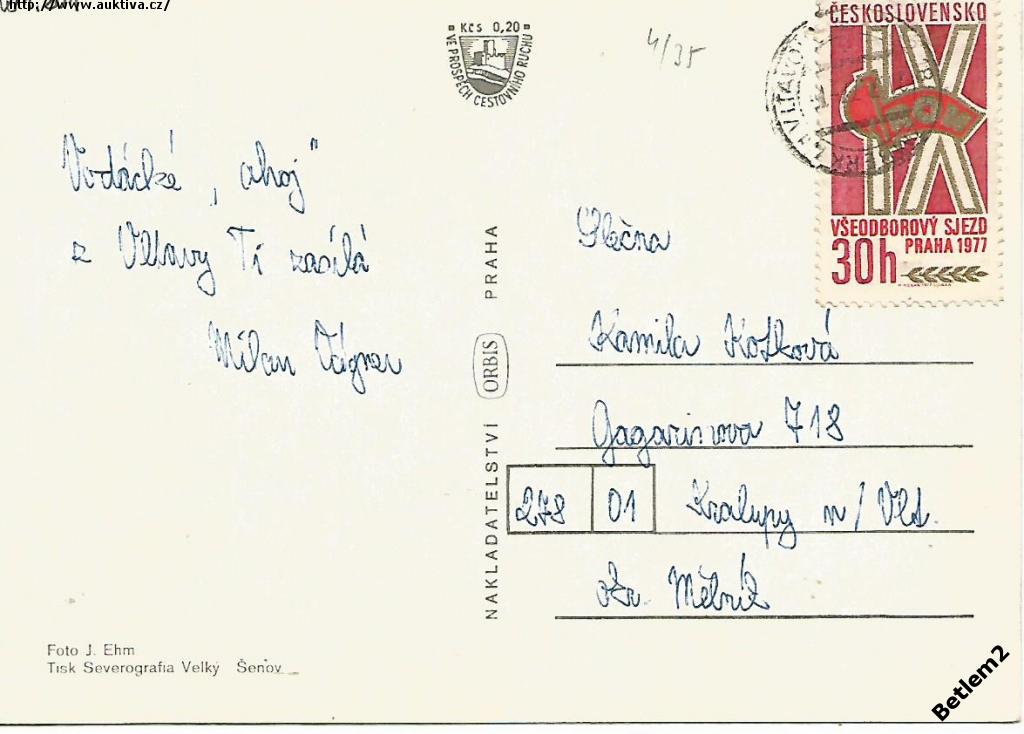 http://www.auktiva.cz/
Kčs 0,20
VE PROSPĚCH CESTOVNÍHO RUCHU
4/35
ČESKOSLOVENSKO
IX
ROH
VŠEODBOROVÝ SJEZD
PRAHA 1977
30h
Vodácké „ahoj"
z Vltavy Ti zasílá
Milan Vágner
NAKLADATELSTVÍ ORBIS PRAHA
Slečna
Kamila Košková
Gagarinova 718
278 01 Kralupy n/Vlt.
okr. Mělník
Foto J. Ehm
Tisk Severografia Velký Šenov
Betlem2